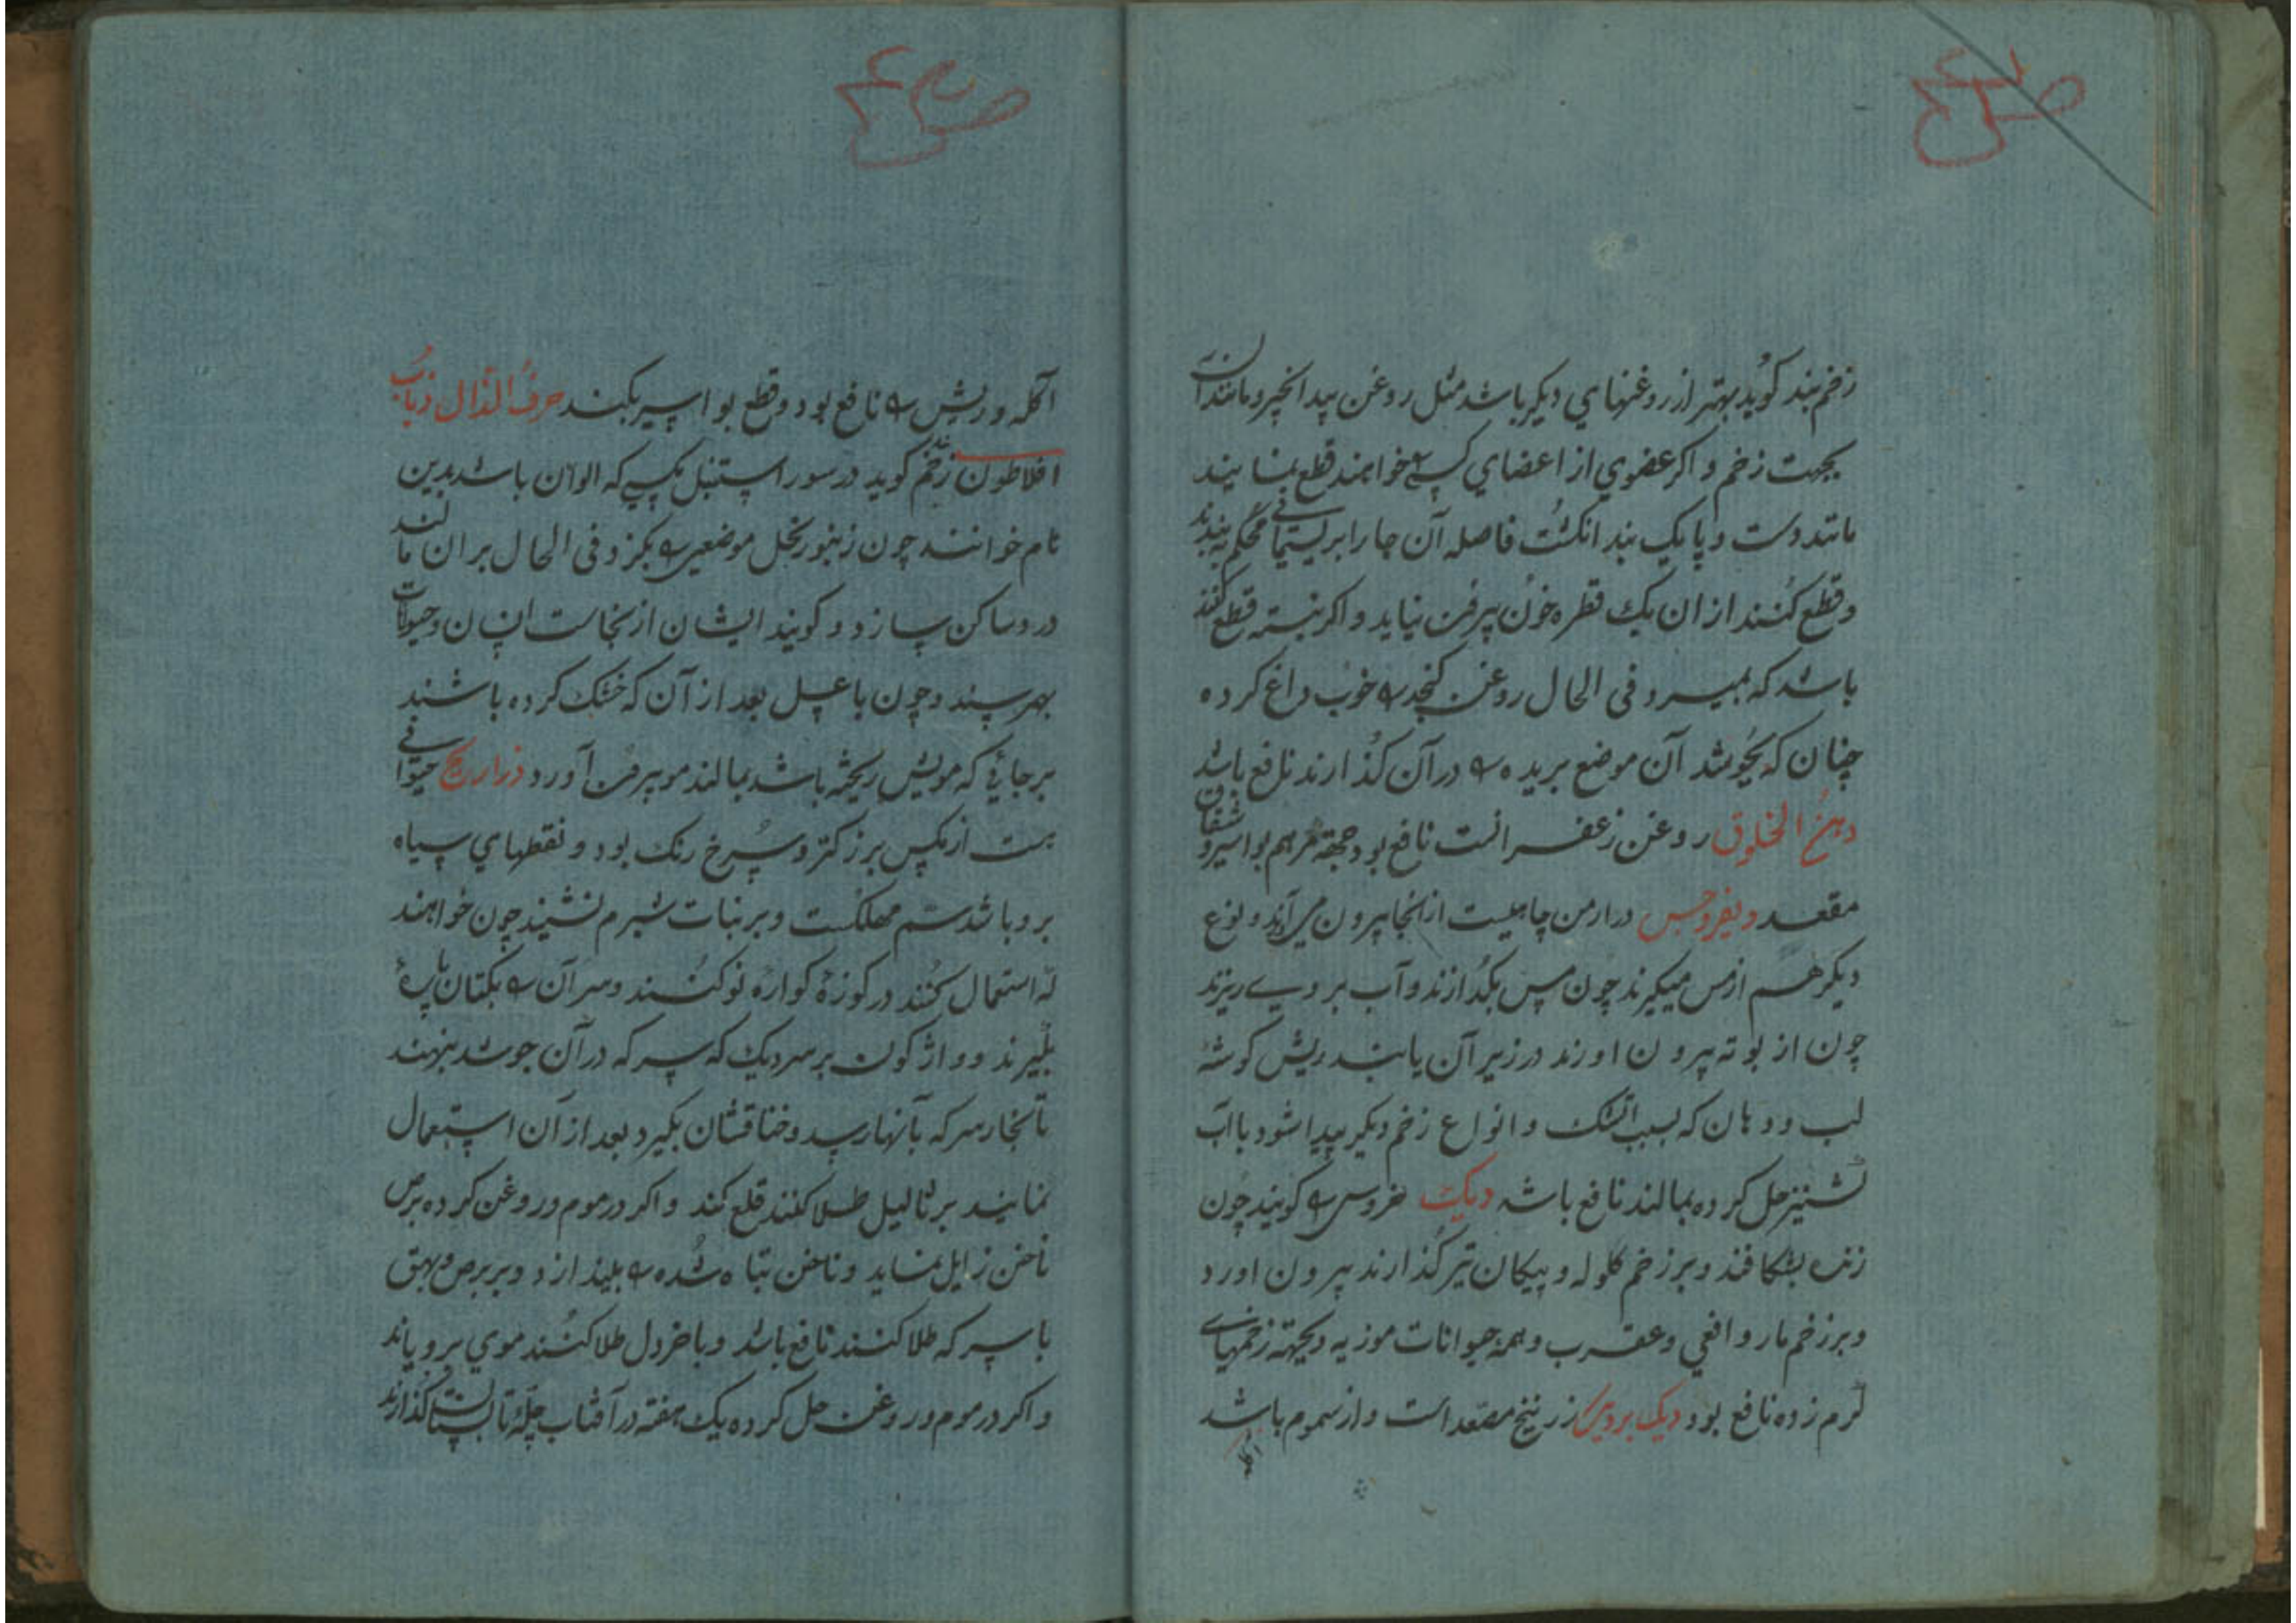 زخم بند کوید بهتر از روغنهای دیکر باشد مثل روغن بید انجیر و مانند آن
بجهت زخم و اکر عضوی از اعضای کسی خواهند قطع نمایند
مانند دست و پا یک بند انکشت فاصله آن جا را بریسمانی محکم به بندند
و قطع کنند از ان یک قطره خون بیرون نیاید و اکر نبسته قطع کنند
باشد که بمیرد فی الحال روغن کنجد را خوب داغ کرده
چنان که بجوشد آن موضع بریده را در آن کذارند نافع باشد
دهن الخلوق روغن زعفرانست نافع بود جهة مرهم بواسیر و شقاق
مقعد دیفروجس در ارمن چاهیست از انجا بیرون می آرند و نوع
دیکر هم از مس میکیرند چون مس بکدازند و آب بر وی ریزند
چون از بوته بیرون اورند در زیر آن یابند ریش کوشه
لب و دهان که بسبب اتشک و انواع زخم دیکر پیدا شود با آب
کشنیز حل کرده بمالند نافع باشد دیک خروس را کویند چون
زنده بشکافند و بر زخم کلوله و پیکان تیر کذارند بیرون اورد
و بر زخم مار و افعی و عقرب و همه حیوانات موزیه و بجهته زخمهای
کرم زده نافع بود دیک بردیک زرنیخ مصعد است و از سموم باشد
اکله
اکله و ریش را نافع بود و قطع بواسیر بکند حرف الذال ذباب
افلاطون زخم بند کوید در سور استنبل مکسی که الوان باشد بدین
نام خوانند چون زنبور نحل موضعی را بکزد فی الحال بر ان مالند
درد ساکن سازد و کویند ایشان از نجاست انسان و حیوانات
بهم رسند و چون با عسل بعد از آن که خشک کرده باشند
بر جائی که مویش ریخته باشد بمالند مو بیرون آورد ذراریح حیوانی
هست از مکس بزرکتر و سرخ رنک بود و نقطهای سیاه
برو باشد سم مهلکست و بر نبات شبرم نشیند چون خواهند
که استعمال کنند در کوزهٔ کواره نو کنند و سر آن را بکتان پارهٔ
بکیرند و واژکون بر سر دیک که سرکه در آن جوشد بنهند
تا بخار سرکه بآنها رسد و خناقشان بکیرد بعد از آن استعمال
نمایند بر ثالیل طلا کنند قلع کند و اکر در موم و روغن کرده برص
ناخن زایل نماید و ناخن تباه شده را بیندازد و بر برص و بهق
با سرکه طلا کنند نافع باشد و با خردل طلا کنند موی برویاند
و اکر در موم و روغن حل کرده یک هفته در آفتاب چلهٔ تابستان کذارند